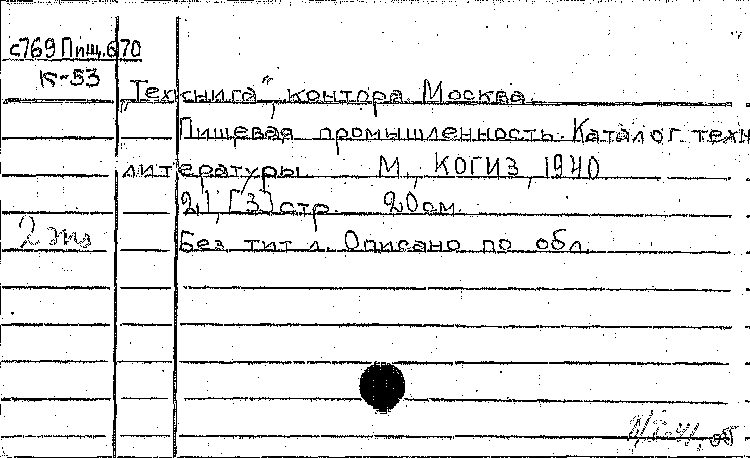 с769 Пищ.670
К-53
„Техкнига“, контора. Москва.
Пищевая промышленность. Каталог техн
литературы М., КОГИЗ, 1940
21, [3] стр. 20 см.
2 экз
Без тит. л. Описано по обл.